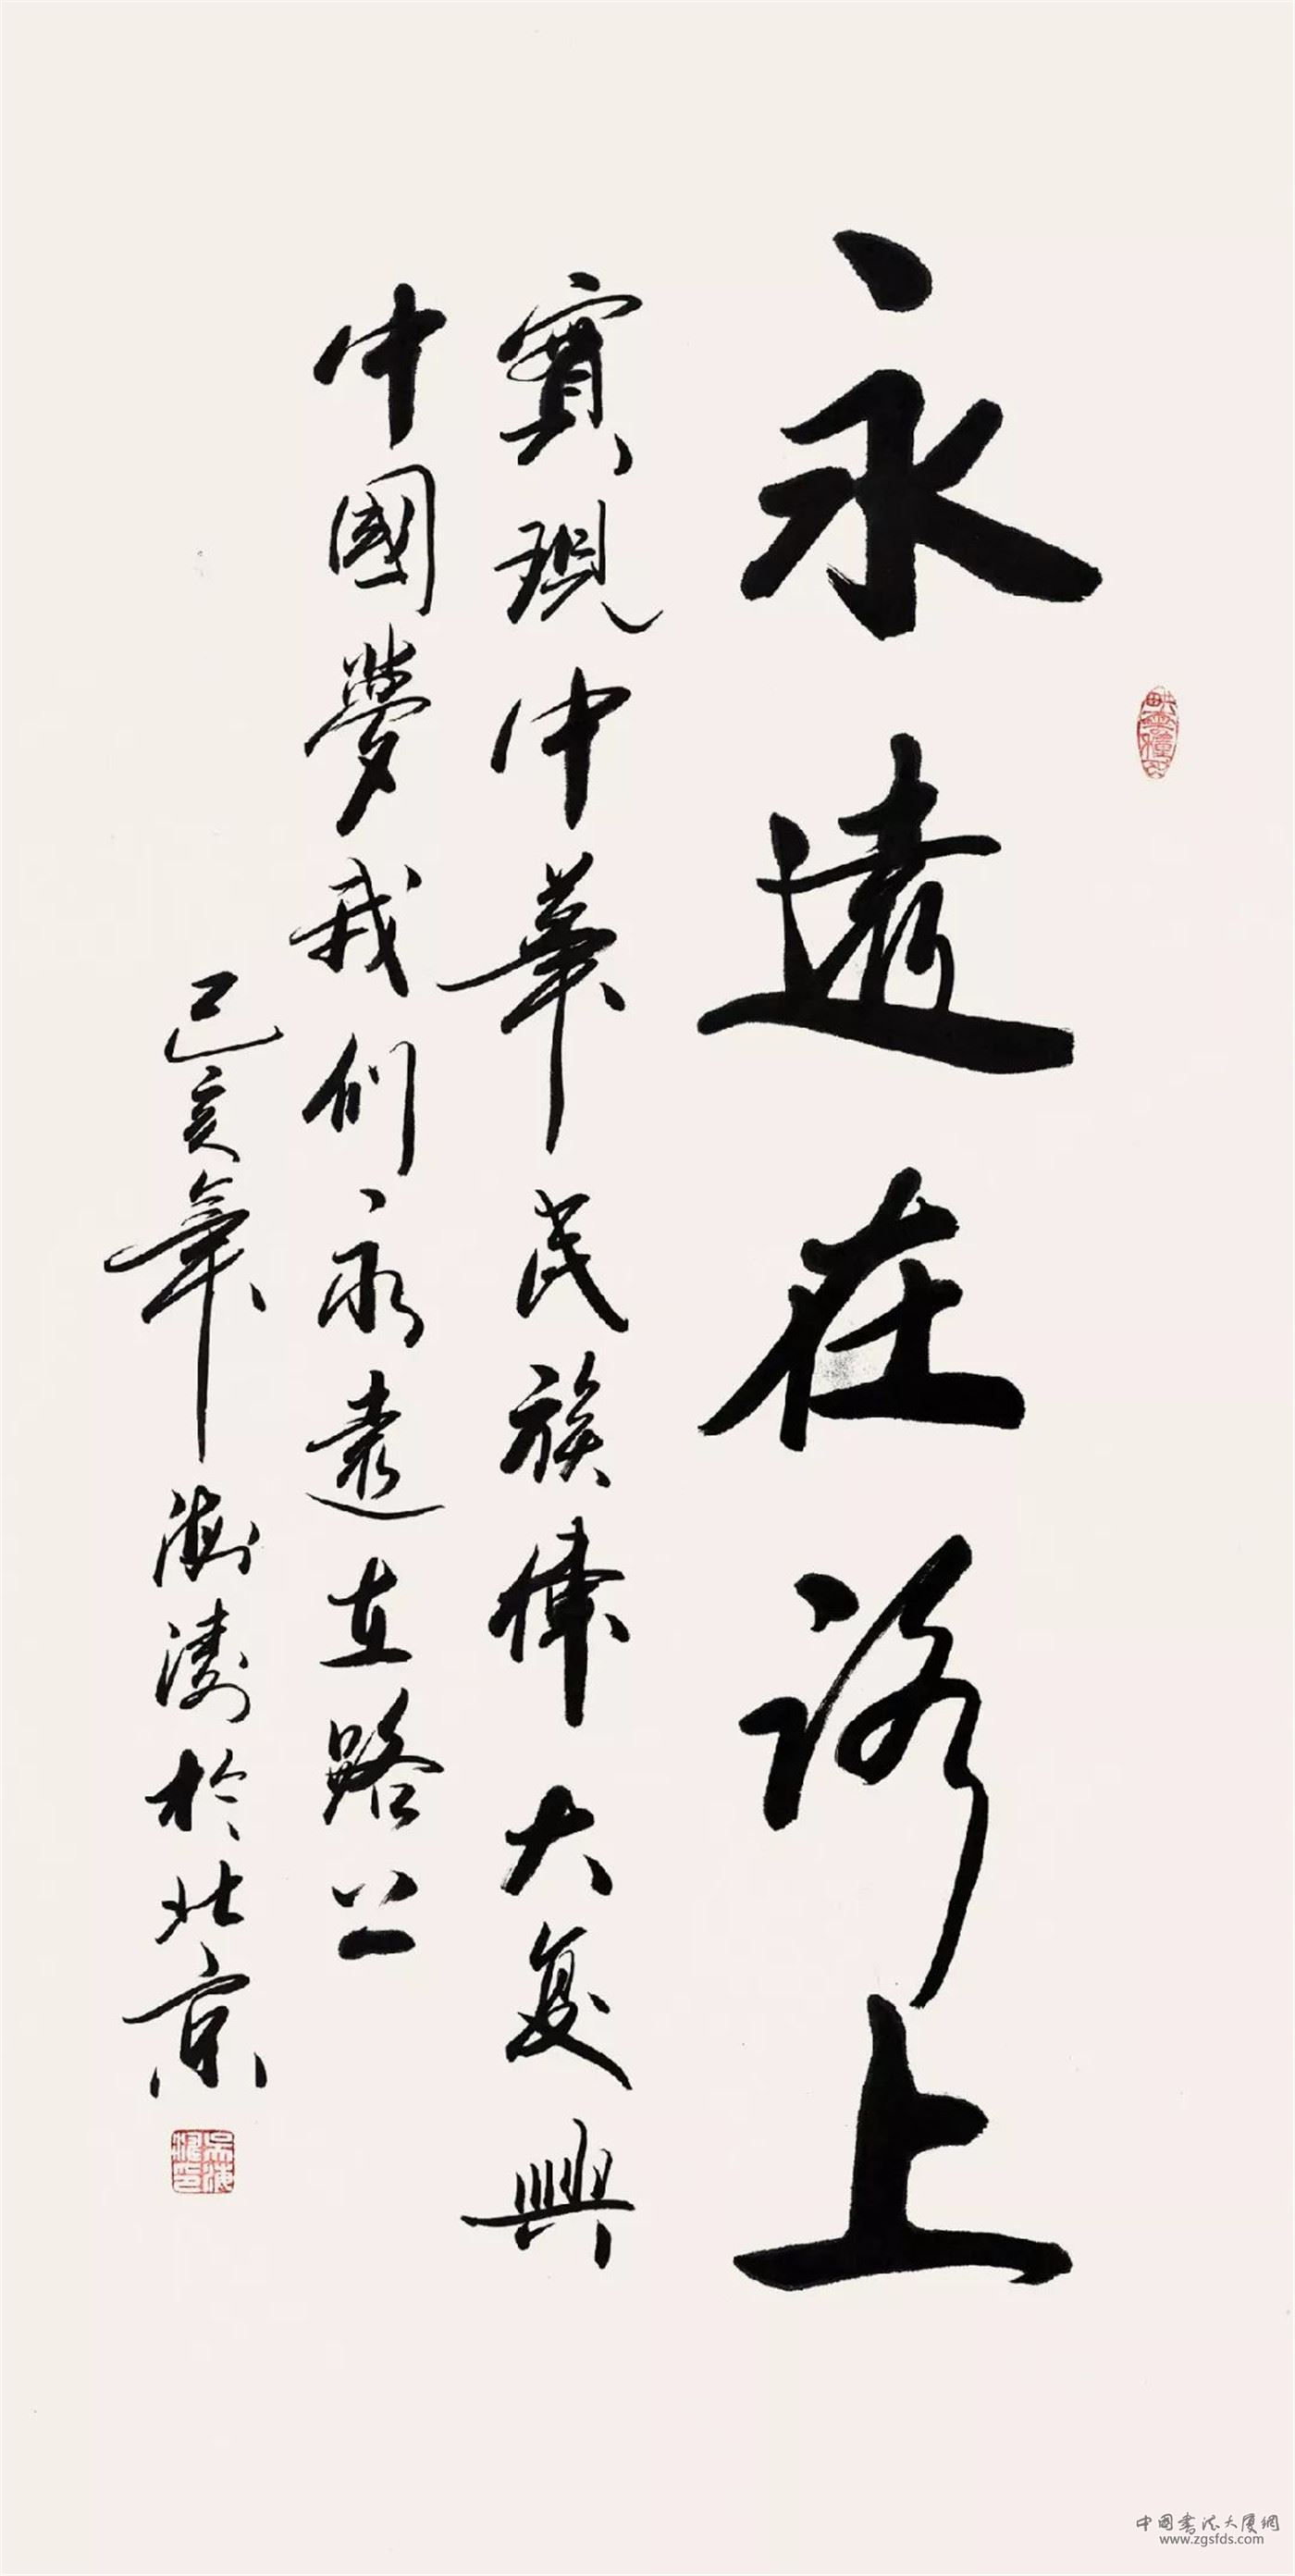 永遠在路上
實現中華民族偉大復興
中國夢我們永遠在路上
己亥年海濤於北京
吴海濤印
中國書法大厦網
www.zgsfds.com